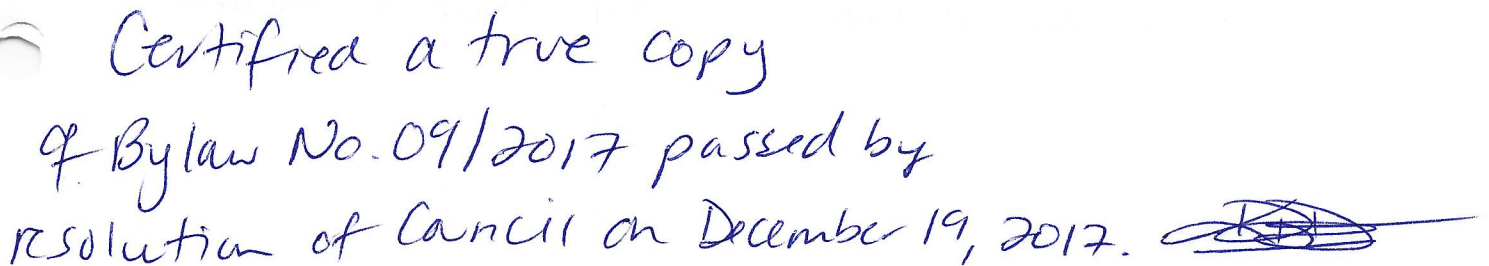 Certified a true copy
of Bylaw No. 09/2017 passed by
resolution of Council on December 19, 2017.